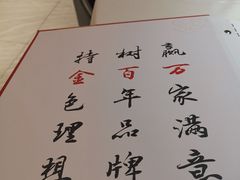 持金色理想
树百年品牌
赢万家满意